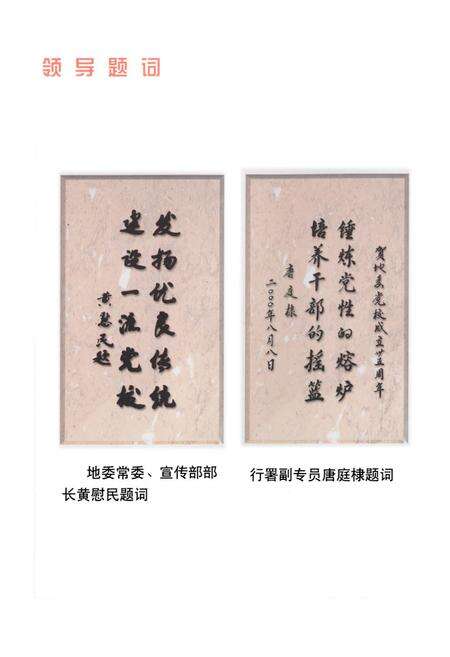 领导题词
发扬优良传统
建设一流党校
黄慰民题
贺地委党校成立廿五周年
锤炼党性的熔炉
培养干部的摇篮
唐庭棣
二〇〇〇年八月八日
地委常委、宣传部部
长黄慰民题词
行署副专员唐庭棣题词